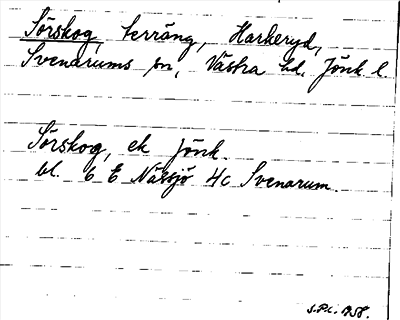 Sörskog, terräng, Harkeryd,
Svenarums sn, Västra hd, Jönk l.
Sörskog, ek Jönk.
bl. 6 E Nässjö 4c Svenarum.
1958.